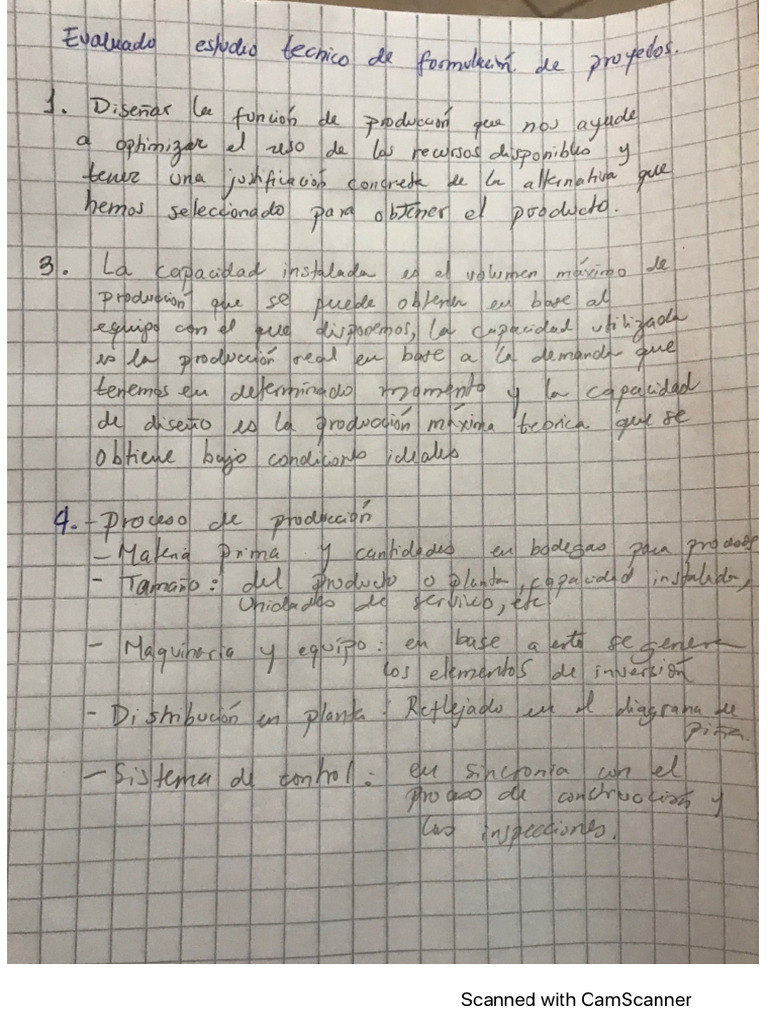 Evaluado estudio tecnico de formulación de proyectos.
1. Diseñar la función de producción que nos ayude
a optimizar el uso de los recursos disponibles y
tener una justificación concreta de la alternativa que
hemos seleccionado para obtener el producto.
3. La capacidad instalada es el volumen máximo de
producción que se puede obtener en base al
equipo con el que disponemos, la capacidad utilizada
es la producción real en base a la demanda que
tenemos en determinado momento y la capacidad
de diseño es la producción máxima teórica que se
obtiene bajo condiciones ideales
4. - Proceso de producción
- Materia prima y cantidades en bodegas para
- Tamaño: del producto o planta, capacidad instalada,
Unidades de servicio, etc.
- Maquinaria y equipo: en base a esto se genera
los elementos de inversión
- Distribución en planta: Reflejado en el diagrama de
- Sistema de control: en sincronia con el
proceso de construcción y
las inspecciones.
Scanned with CamScanner